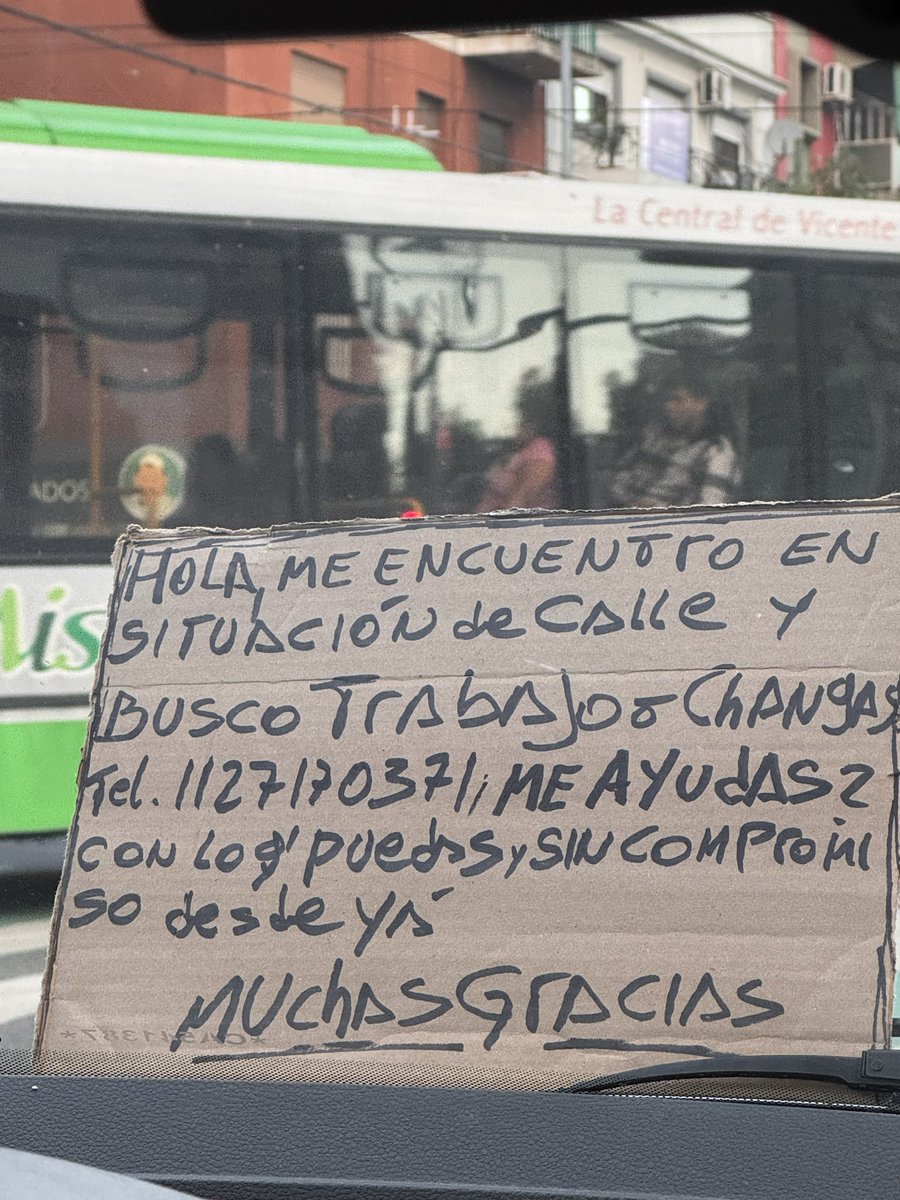 La Central de Vicente
ADOS
Mis
HOLA, ME ENCUENTRO EN
SITUACIÓN de CALLE Y
BUSCO TRABAJO o CHANGAS
Tel. 1127170371; ME AYUDAS?
CON LO q' PUEDAS, y SIN COMPROMI
SO desde YÁ
MUCHAS GRACIAS